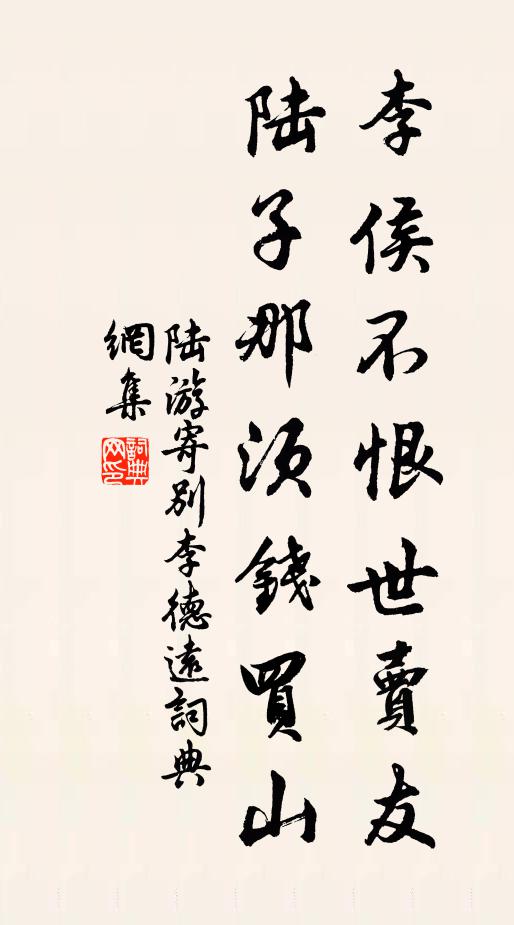 李侯不恨世賣友
陆子那须錢買山
陆游寄别李德遠詞典
網集
詞典网印